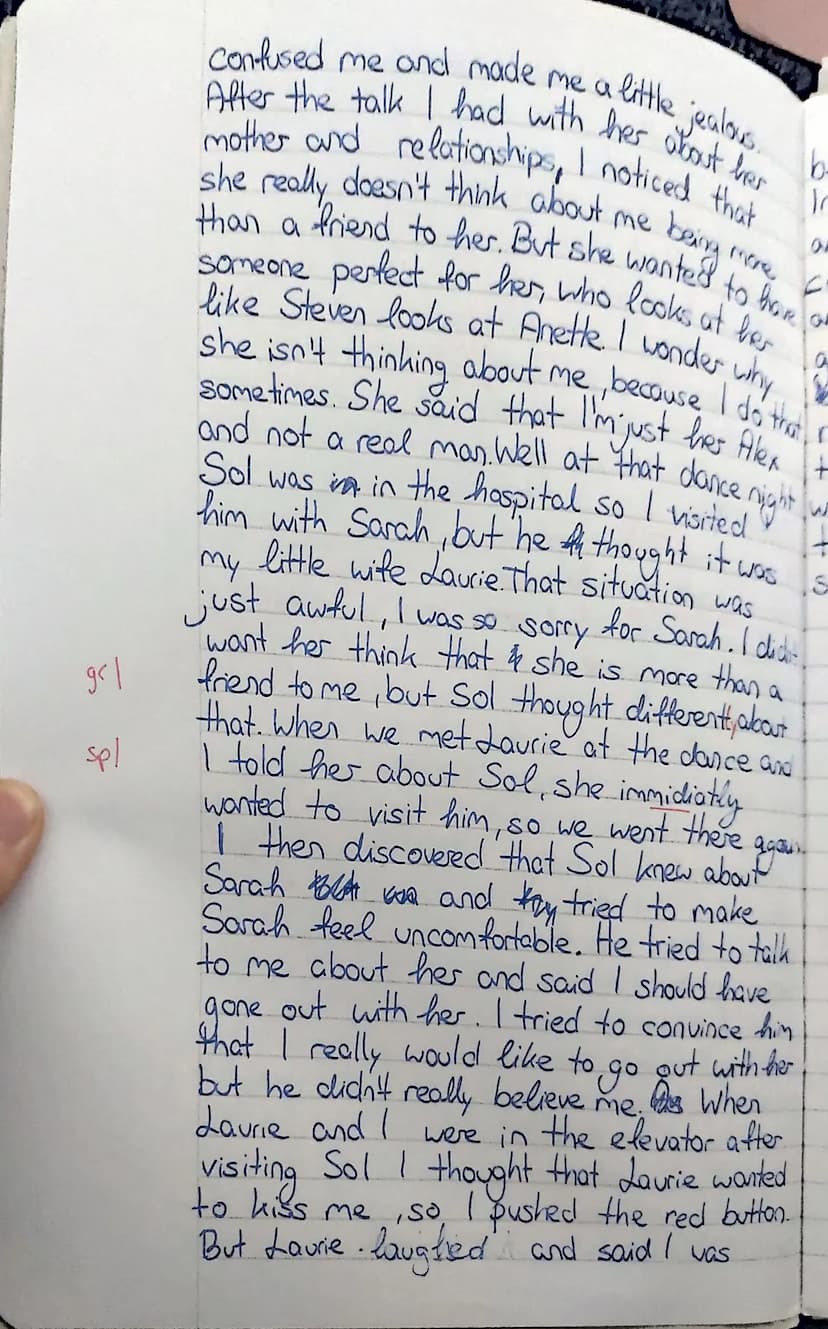 confused me and made me a little jealous.
After the talk I had with her about her
mother and relationships, I noticed that
she really doesn't think about me being more
than a friend to her. But she wanted to have
someone perfect for her, who looks at her
like Steven looks at Anette. I wonder why
she isn't thinking about me, because I do that
sometimes. She said that I'm just her Alex
and not a real man. Well at that dance night
Sol was in the hospital so I visited
him with Sarah, but he thought it was
my little wife Laurie. That situation was
just awful, I was so sorry for Sarah. I didn
want her think that she is more than a
gr|
friend to me, but Sol thought different, about
that. When we met Laurie at the dance and
sp|
I told her about Sol, she immidiatly
wanted to visit him, so we went there again.
I then discovered that Sol knew about
Sarah and tried to make
Sarah feel uncomfortable. He tried to talk
to me about her and said I should have
gone out with her. I tried to convince him
that I really would like to go out with her
but he didn't really believe me. When
Laurie and I were in the elevator after
visiting Sol I thought that Laurie wanted
to kiss me, so, I pushed the red button.
But Laurie laughed and said I was